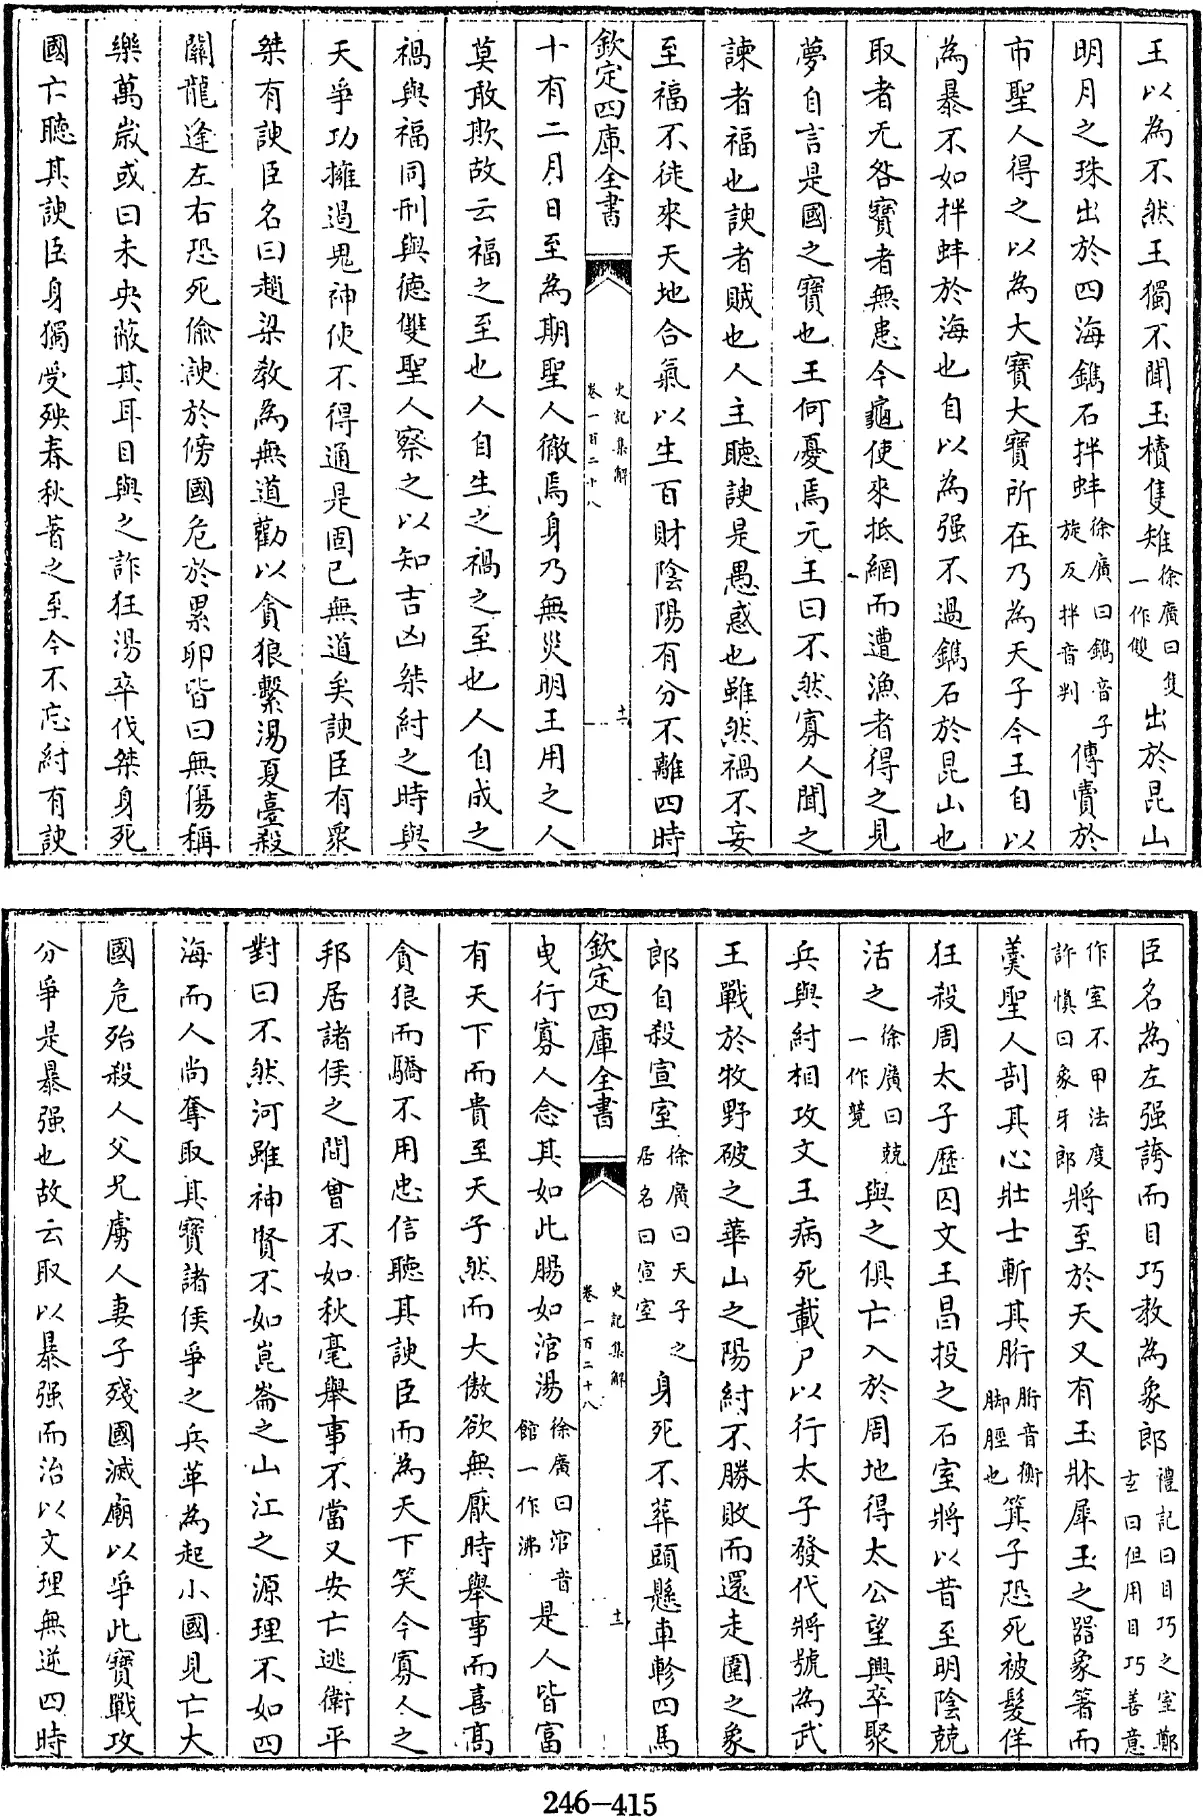 王以為不然王獨不聞玉櫝隻雉徐廣曰隻一作雙出於昆山
明月之珠出於四海鐫石拌蚌徐廣曰鐫音子旋反拌音判傳賣於
市聖人得之以為大寶大寶所在乃為天子今王自以
為暴不如拌蚌於海也自以為强不過鐫石於昆山也
取者无咎寶者無患今龜使來抵網而遭漁者得之見
夢自言是國之寶也王何憂焉元王曰不然寡人聞之
諫者福也諛者賊也人主聽諛是愚惑也雖然禍不妄
至福不徒來天地合氣以生百財陰陽有分不離四時
欽定四庫全書
史記集解
卷一百二十八
十二
十有二月日至為期聖人徹焉身乃無災明王用之人
莫敢欺故云福之至也人自生之禍之至也人自成之
禍與福同刑與德雙聖人察之以知吉凶桀紂之時與
天爭功擁遏鬼神使不得通是固已無道矣諛臣有衆
桀有諛臣名曰趙梁教為無道勸以貪狼繫湯夏臺殺
關龍逢左右恐死偷諛於傍國危於累卵皆曰無傷稱
樂萬歲或曰未央蔽其耳目與之詐狂湯卒伐桀身死
國亡聽其諛臣身獨受殃春秋著之至今不忘紂有諛
臣名為左强誇而目巧教為象郎禮記曰目巧之室鄭玄曰但用目巧善意
作室不甲法度許慎曰象牙郎將至於天又有玉牀犀玉之器象箸而
羹聖人剖其心壯士斬其胻胻音衡脚脛也箕子恐死被髮佯
狂殺周太子歷囚文王昌投之石室將以昔至明陰兢
活之徐廣曰兢一作竸與之俱亡入於周地得太公望興卒聚
兵與紂相攻文王病死載尸以行太子發代將號為武
王戰於牧野破之華山之陽紂不勝敗而還走圍之象
郎自殺宣室徐廣曰天子之居名曰宣室身死不葬頭懸車軫四馬
欽定四庫全書
史記集解
卷一百二十八
十二
曳行寡人念其如此腸如涫湯徐廣曰涫音館一作沸是人皆富
有天下而貴至天子然而大傲欲無厭時舉事而喜高
貪狼而驕不用忠信聽其諛臣而為天下笑今寡人之
邦居諸侯之間曾不如秋毫舉事不當又安亡逃衛平
對曰不然河雖神賢不如崑崙之山江之源理不如四
海而人尚奪取其寶諸侯爭之兵革為起小國見亡大
國危殆殺人父兄虜人妻子殘國滅廟以爭此寶戰攻
分爭是暴强也故云取以暴强而治以文理無逆四時
246-415